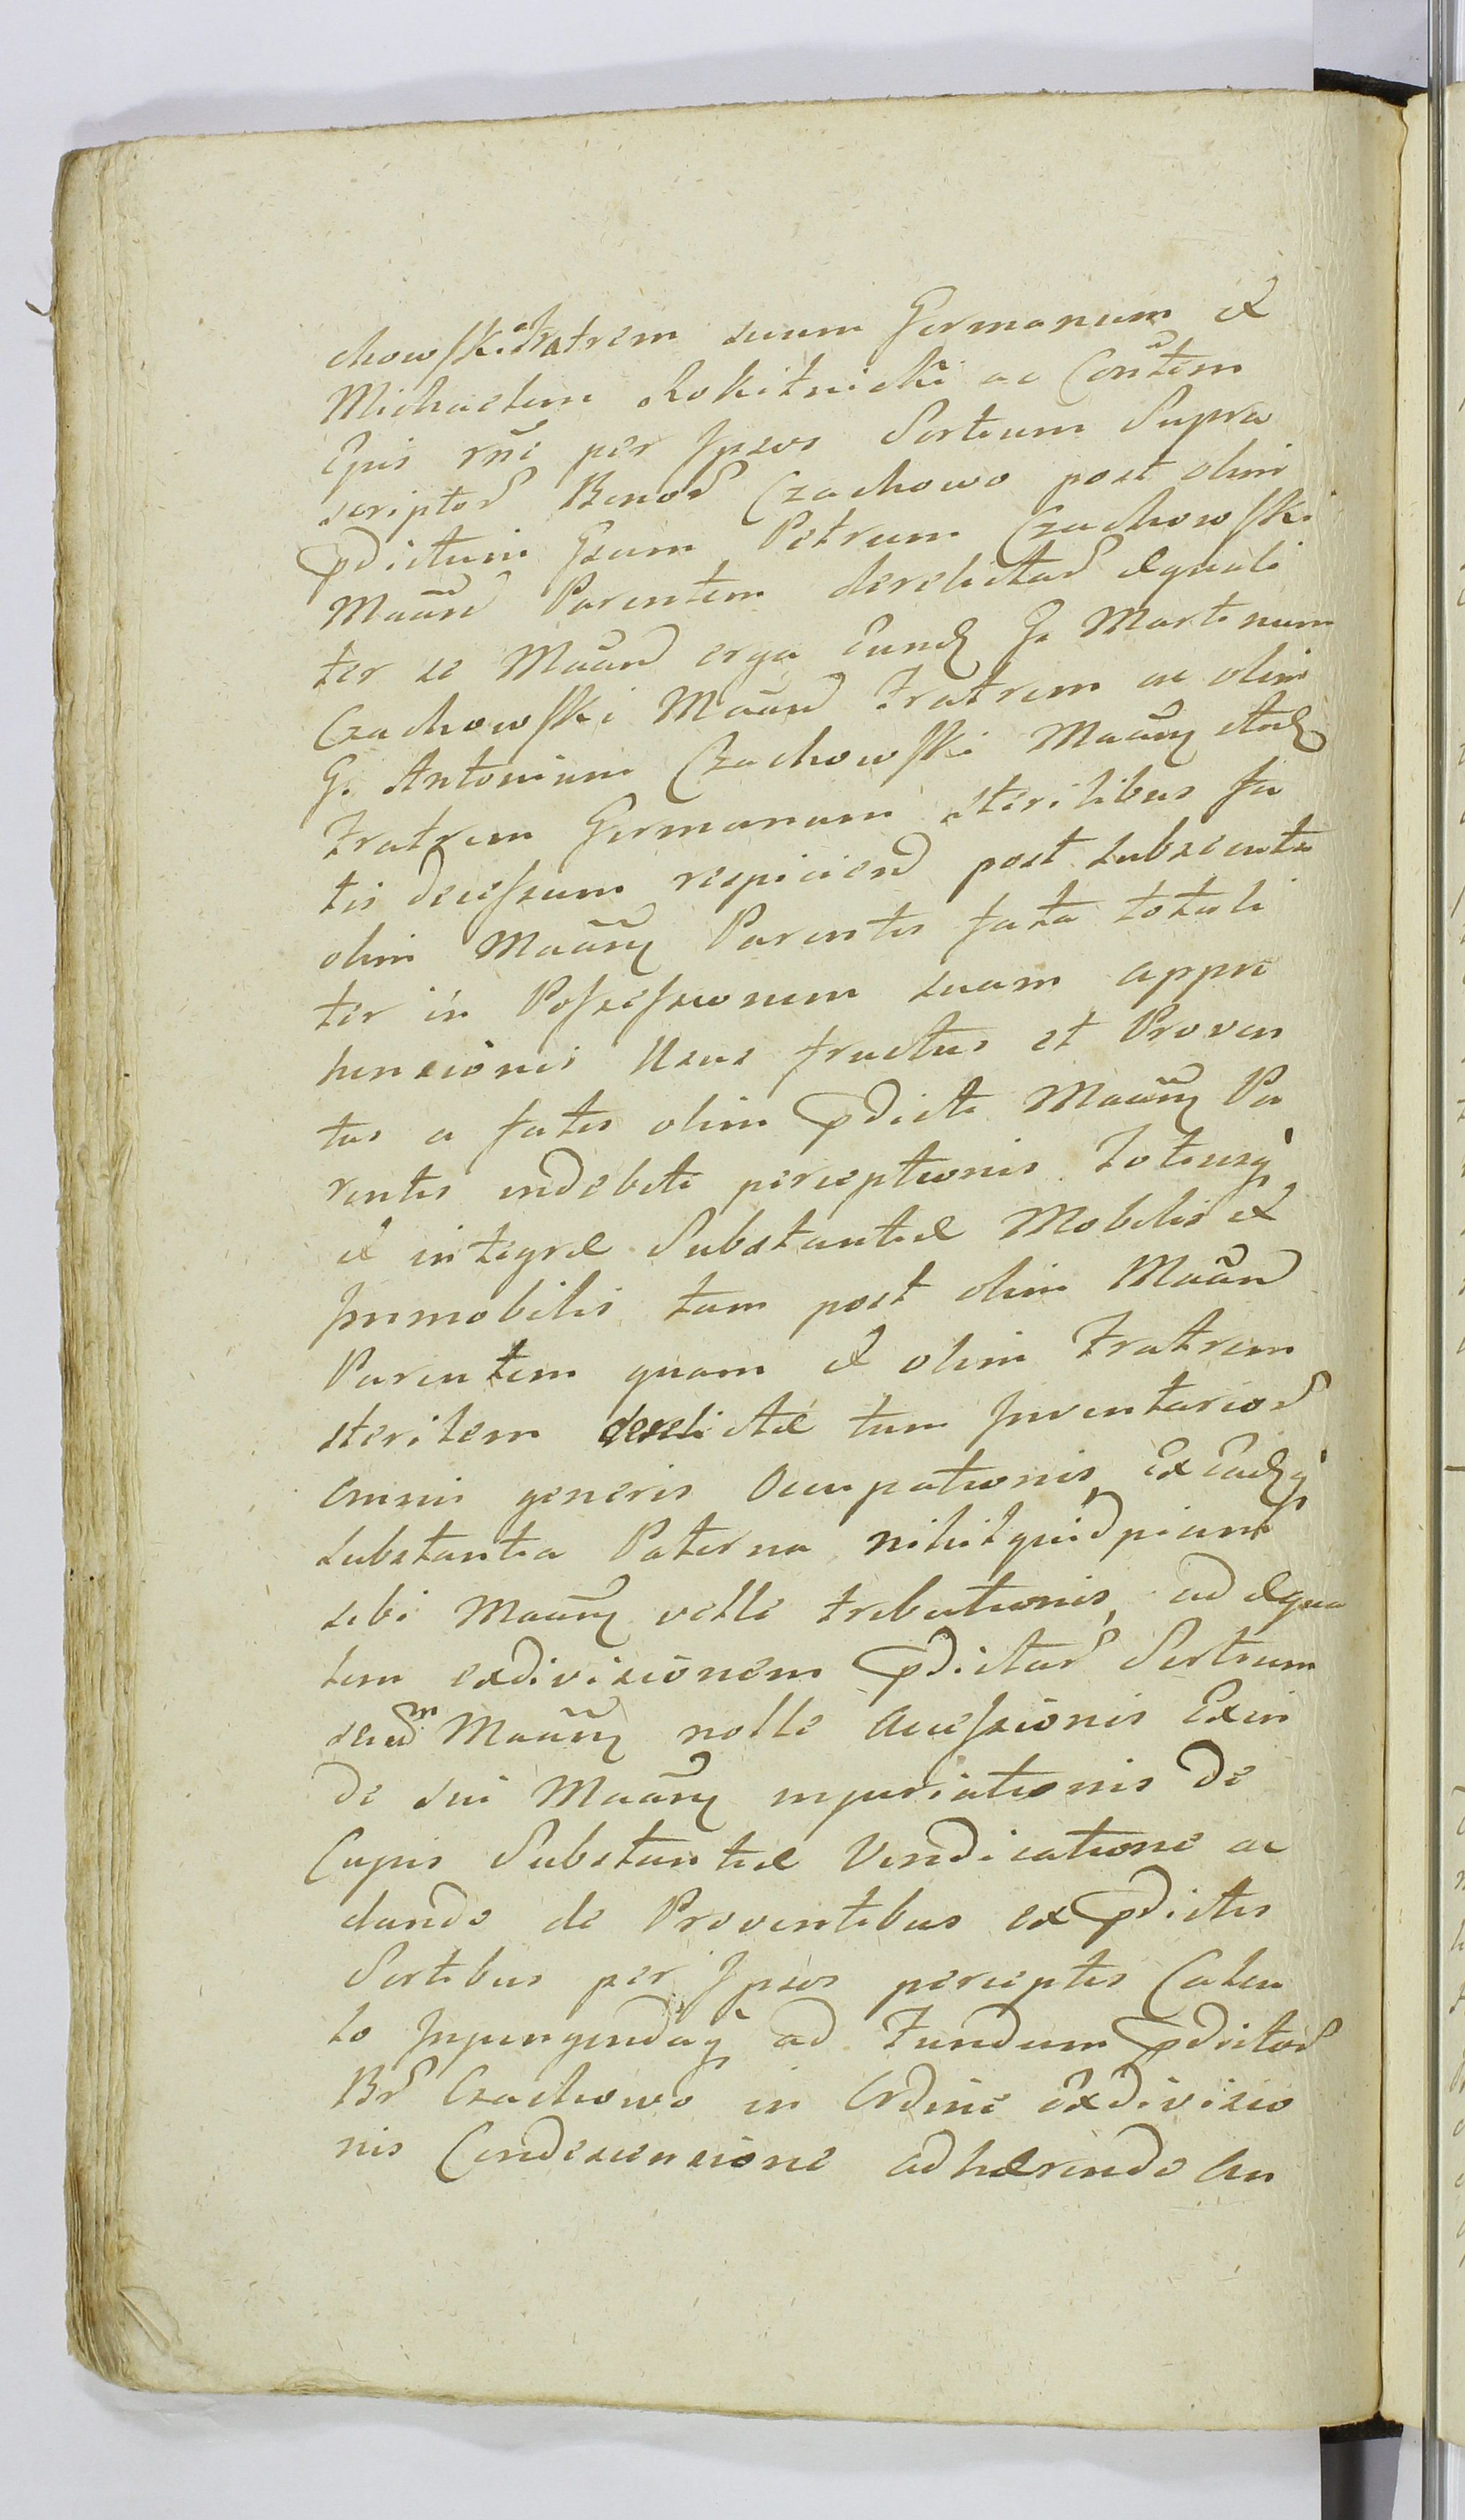 chowski Fratrem suum Germanum et
Michaelem Rokitnicki ac Conttem
Ejus rne per Ipsos Sortium Supra
script Bonor Czachowo post olim
pdictum Gsum Petrum Czachowski
Maan Parentem derelictar æquali
ter se Maan erga Eund G. Martinum
Czachowski Maan Fratrem ac olim
G. Antonium Czachowski Maany itid
Fratrem Germanum sterilibus fa
tis decessum respiciend post subsecuta
olim Maany Parentis fata totali
ter in Possessionem suam appre
hensionis Usus fructus et Proven
tus a fatis olim pdicti Maany Pa
rentis indebiti perceptionis Totiusq
et integræ Substantiæ Mobilis et
Immobilis tam post olim Maan
Parentem quam et olim Fratrem
sterilem derelictæ tum Inventarior
omnis generis Occupationis Ex Eadq
substantia Paterna nihilquidpiam
sibi Maany velle tributionis, ad æqua
lem exdivisionem pdictar Sortium
secum Maany nolle Accessionis Exin
de sui Maany injuriationis de
Cujus Substantiæ Vendicatione ac
dando de Proventibus ex pdictis
Sortibus per Ipsos perceptis Calcu
lo Injungendaq ad Fundum pdictor
Br Czachowo in Ordine exdivisio
nis Condescensione adhærendo An